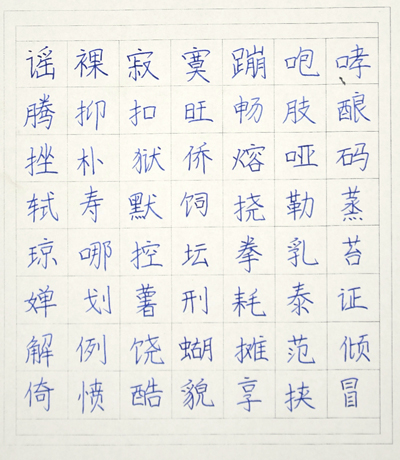 谣裸寂寞蹦咆哮
腾抑扣旺畅肢酿
挫朴狱侨熔哑码
轼寿默饲挠勒蒸
琼哪控坛拳乳苔
婵划薯刑耗泰证
解例饶蝴摊范倾
倚愤酷貌享挟冒